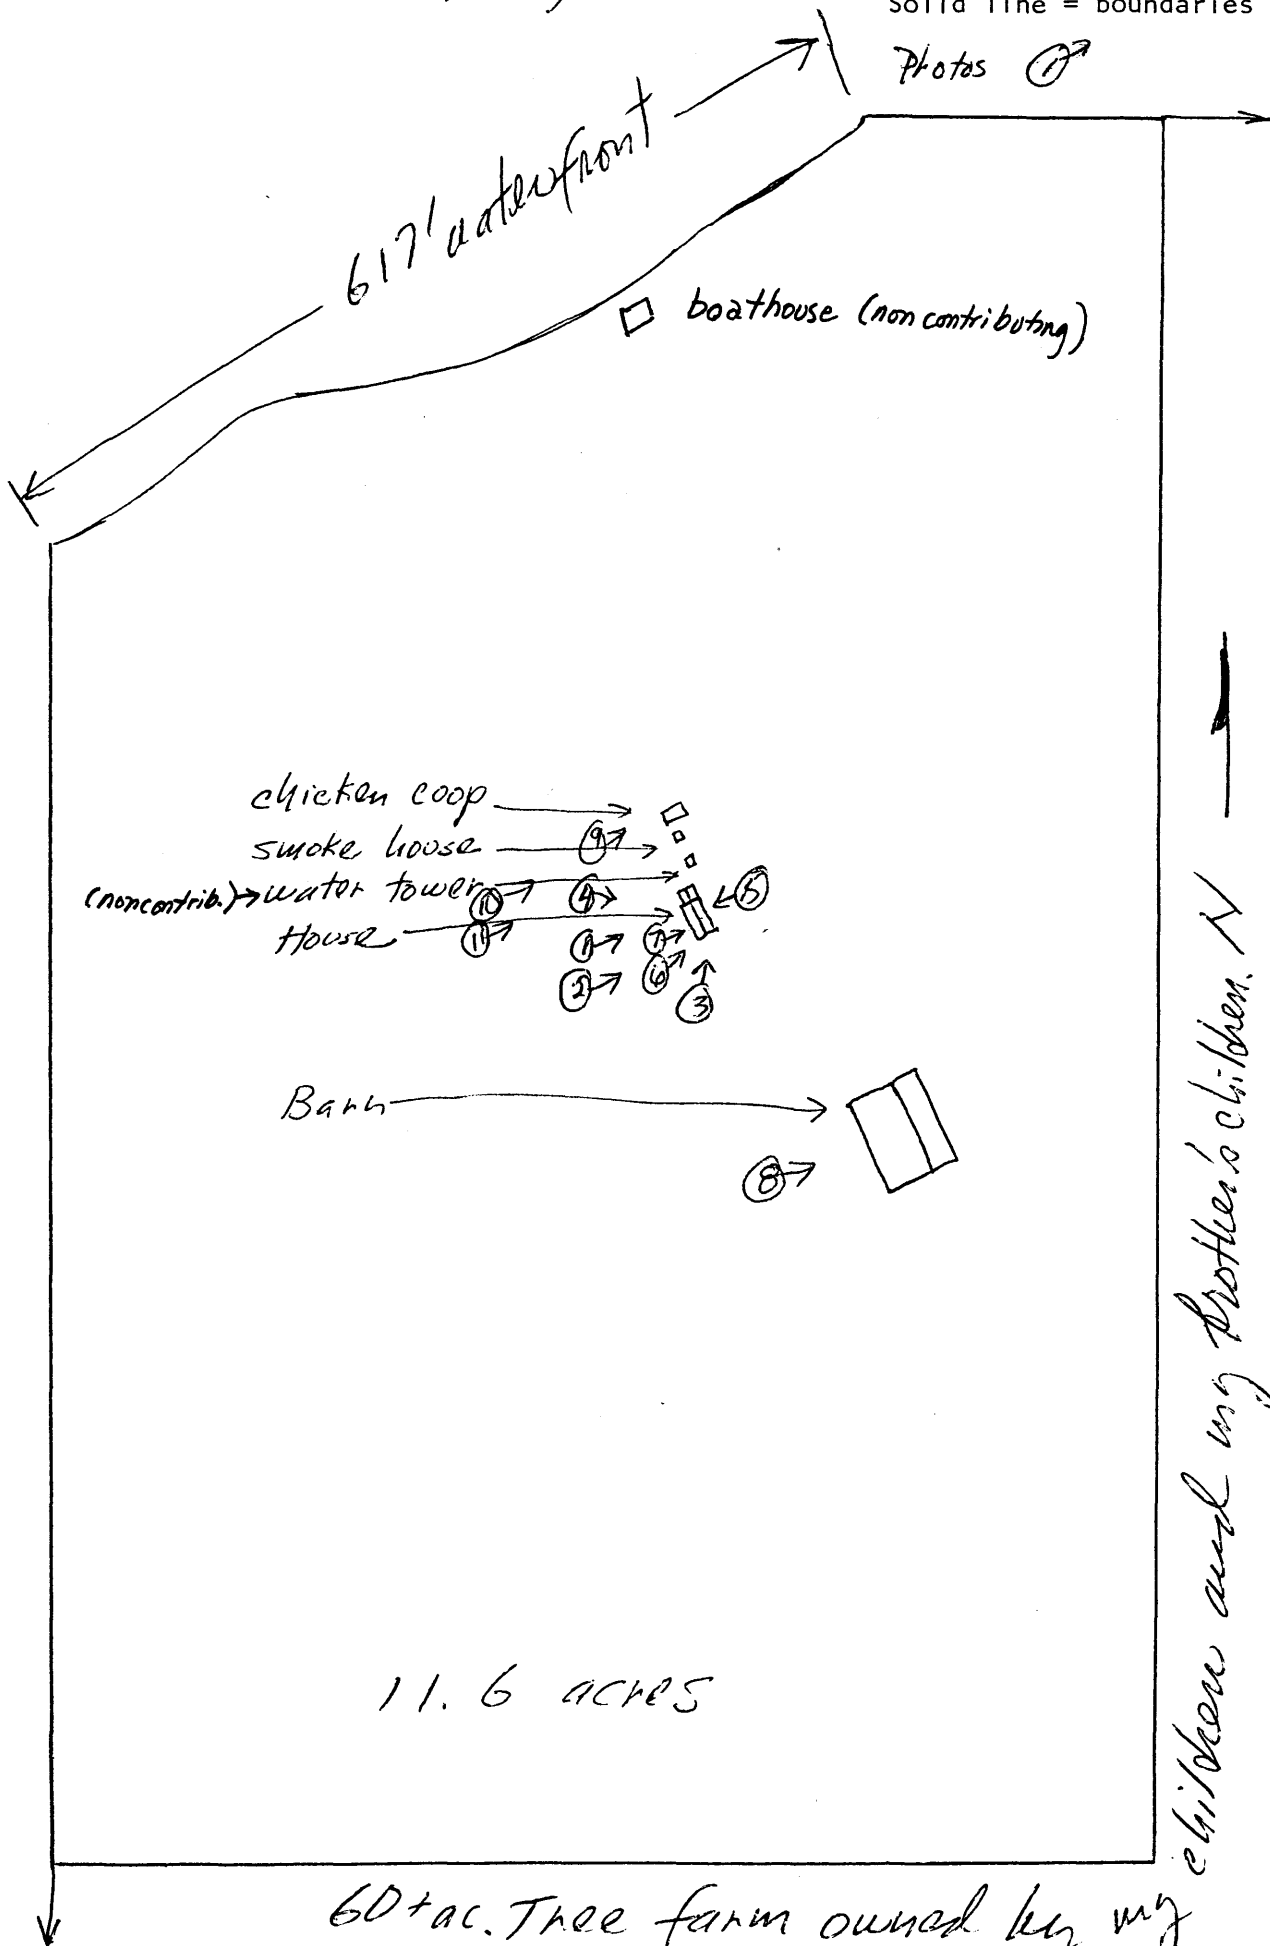 Solid line = boundaries
Photos ①
617' waterfront
boathouse (noncontributing)
chicken coop
⑨
smoke house
(noncontrib.) → water tower
⑩ ④ ⑤
House
⑪ ① ⑦
② ⑥ ③
Barn
⑧
N
11.6 acres
60+ac. Tree farm owned by my
children and my brother's children.